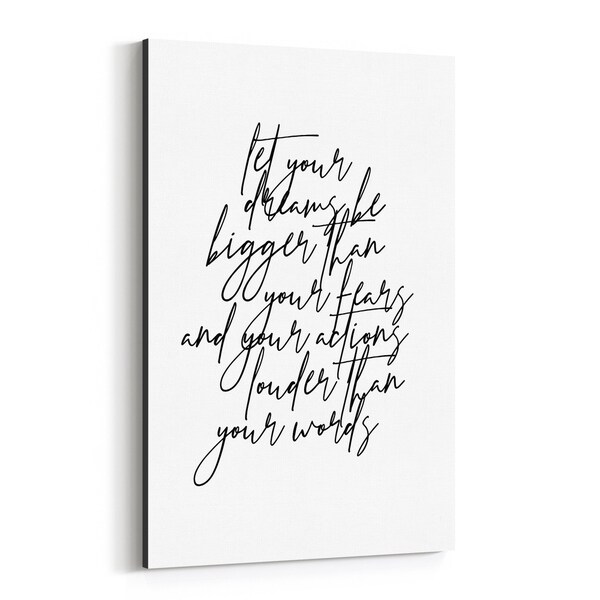 let your
dreams be
bigger than
your fears
and your actions
louder than
your words